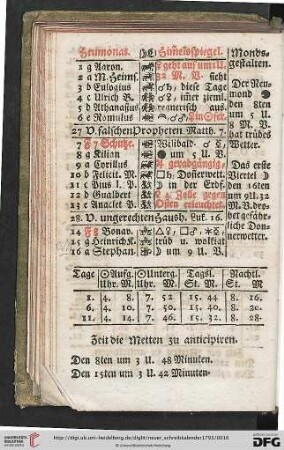 Heumonat. Himelsspiegel. Monds-
gestalten.
1 g Aaron. geht auf um 1 U.
2 a M. Heims. 32 M. V. sieht
3 b Eulogius diese Tage Der Neu-
4 c Ulrich B. imer zieml. mond
5 d Athanasius den 8ten
6 e Romulus um 5 U.
8 M. V.
27 V. falschen Propheten Matth. 7. hat trübes
7 F Wilibald. Wetter.
8 g Kilian um 5 U. V.
9 a Cyrillus Das erste
10 b Felicit. M. Viertel
11 c Pius I. P. in der Erdf. den 16ten
12 d Gualbert gegen um 9 U. 32
13 e Anaclet P. Osten erleuchtet. M. V.
28. V. ungerechten Haush. Luk. 16.
14 F Bonav. liche Don-
15 g Heinrich K. trüb u. wolkigt nerwetter.
16 a Stephan. um 9 U. V.
Tage Aufg. Unterg. Tagsl. Nachtl.
Uhr. M. Uhr. M. St. M. St. M
1. 4. 8. 7. 52 15. 44 8. 16.
6. 4. 10. 7. 50. 15. 40. 8. 20.
11. 4. 14. 7. 46. 15. 32. 8. 28.
Zeit die Metten zu anticipiren.
Den 8ten um 3 U. 48 Minuten.
Den 15ten um 3 U. 42 Minuten.
http://digi.ub.uni-heidelberg.de/diglit/neuer_schreibkalender1793/0016
UNIVERSITÄTS-
BIBLIOTHEK
HEIDELBERG
DFG